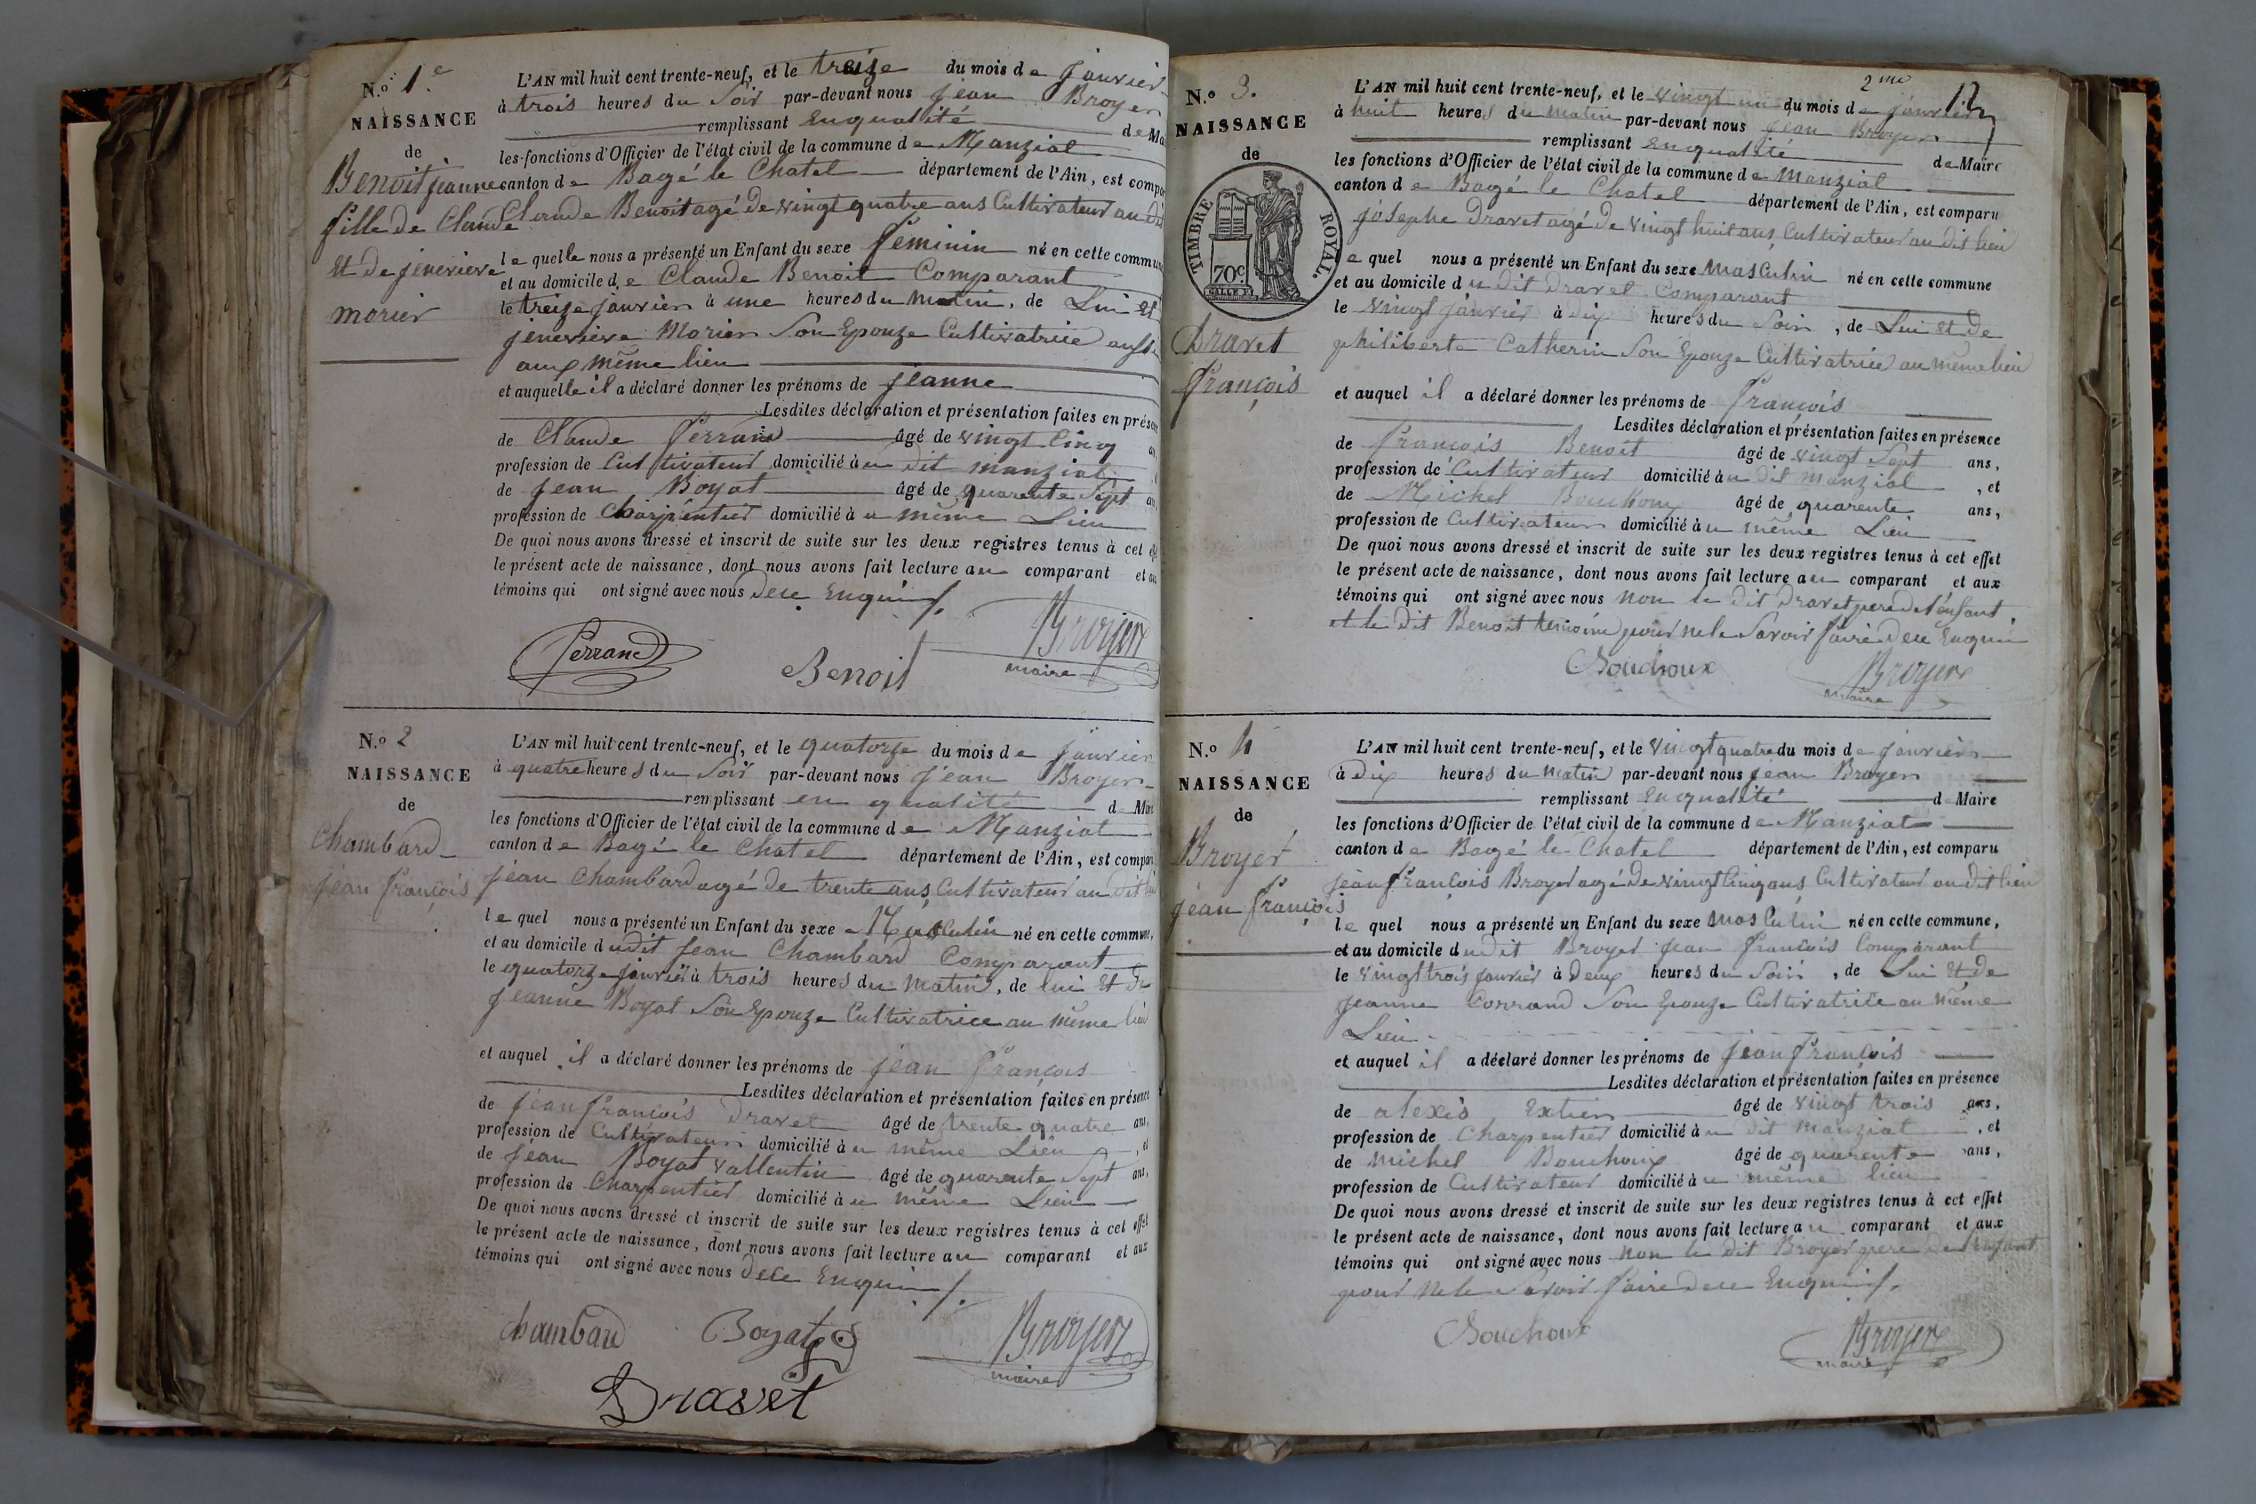 N.o 1.e
NAISSANCE
de
Benoit jeanne
fille de Claude
et de jenevieve
morier
L'AN mil huit cent trente-neuf, et le treize du mois de janvier
à trois heures du Soir par-devant nous jean Broyer
remplissant enqualité de Ma
les fonctions d'Officier de l'état civil de la commune de Manziat
canton de Bagé le Chatel département de l'Ain, est compa
Claude Benoit agé de vingt quatre ans Cultivateur au dit
le quelle nous a présenté un Enfant du sexe feminin né en cette commune
et au domicile de Claude Benoit Comparant
le treize janvier à une heures du matin, de Lui et
jenevieve Morier Son Epouze Cultivatrice aussi
aux même lieu
et auquelle il a déclaré donner les prénoms de jeanne
Lesdites déclaration et présentation faites en présen
de Claude Ferrand âgé de vingt Cinq
profession de Cultivateur domicilié au dit manziat
de jean Boyat âgé de quarente Sept an
profession de Charpentier domicilié à u même Lieu
De quoi nous avons dressé et inscrit de suite sur les deux registres tenus à cet
le présent acte de naissance, dont nous avons fait lecture au comparant et au
témoins qui ont signé avec nous dece Enquis
Ferrand Benoit Broyer
maire
N.o 2
NAISSANCE
de
Chambard
jean françois
L'AN mil huit cent trente-neuf, et le quatorze du mois de janvier
à quatre heures du Soir par-devant nous jean Broyer
remplissant en qualité de Mai
les fonctions d'Officier de l'état civil de la commune de Manziat
canton de Bagé le Chatel département de l'Ain, est comparu
jean Chambard agé de trente ans Cultivateur au dit lieu
le quel nous a présenté un Enfant du sexe Masculin né en cette commune,
et au domicile dudit jean Chambard Comparant
le quatorze janvier à trois heures du matin, de lui et de
jeanne Boyat Son Epouze Cultivatrice au même lieu
et auquel il a déclaré donner les prénoms de jean françois
Lesdites déclaration et présentation faites en présence
de jean françois Dravet âgé de trente quatre ans,
profession de Cultivateur domicilié à u même Lieu, et
de jean Boyat vallentin âgé de quarente Sept ans,
profession de Charpentier domicilié à u même Lieu
De quoi nous avons dressé et inscrit de suite sur les deux registres tenus à cet effet
le présent acte de naissance, dont nous avons fait lecture au comparant et aux
témoins qui ont signé avec nous dece Enqui
Chambard Boyat Broyer
maire
Dravet
2me 12
N.o 3.
NAISSANCE
de
TIMBRE ROYAL.
70c.
Dravet
françois
L'AN mil huit cent trente-neuf, et le vingt un du mois de janvier
à huit heures du matin par-devant nous jean Broyer
remplissant enqualité de Maire
les fonctions d'Officier de l'état civil de la commune de manziat
canton de Bagé le Chatel département de l'Ain, est comparu
josephe Dravet agé de vingt huit ans, Cultivateur au dit lieu
le quel nous a présenté un Enfant du sexe masculin né en cette commune
et au domicile du dit Dravet Comparant
le vingt janvier à dix heures du Soir, de Lui et de
philiberte Catherin Son Epouze Cultivatrice au même lieu
et auquel il a déclaré donner les prénoms de françois
Lesdites déclaration et présentation faites en présence
de françois Benoit âgé de vingt Sept ans,
profession de Cultivateur domicilié à u dit manziat, et
de Michel Bouchoux âgé de quarente ans,
profession de Cultivateur domicilié à u même Lieu
De quoi nous avons dressé et inscrit de suite sur les deux registres tenus à cet effet
le présent acte de naissance, dont nous avons fait lecture au comparant et aux
témoins qui ont signé avec nous non le dit Dravet pere de l'enfant
et le dit Benoit temoin pour nele Savoir faire dece Enqui
Bouchoux Broyer
maire
N.o 4
NAISSANCE
de
Broyer
jean françois
L'AN mil huit cent trente-neuf, et le vingt quatre du mois de janvier
à dix heures du matin par-devant nous jean Broyer
remplissant enqualité de Maire
les fonctions d'Officier de l'état civil de la commune de Manziat
canton de Bagé le Chatel département de l'Ain, est comparu
jean françois Broyer agé de vingt Cinq ans Cultivateur au dit lieu
le quel nous a présenté un Enfant du sexe masculin né en cette commune,
et au domicile dudit Broyer jean françois Comparant
le vingt trois janvier à deux heures du Soir, de Lui et de
jeanne Corrand Son Epouze Cultivatrice au même
Lieu
et auquel il a déclaré donner les prénoms de jean françois
Lesdites déclaration et présentation faites en présence
de alexis Extier âgé de vingt trois ans,
profession de Charpentier domicilié à u dit manziat, et
de michel Bouchoux âgé de quarente ans,
profession de Cultivateur domicilié à u même lieu
De quoi nous avons dressé et inscrit de suite sur les deux registres tenus à cet effet
le présent acte de naissance, dont nous avons fait lecture au comparant et aux
témoins qui ont signé avec nous non le dit Broyer pere de l'enfant
pour nele Savoir faire dece Enqui
Bouchoux Broyer
maire